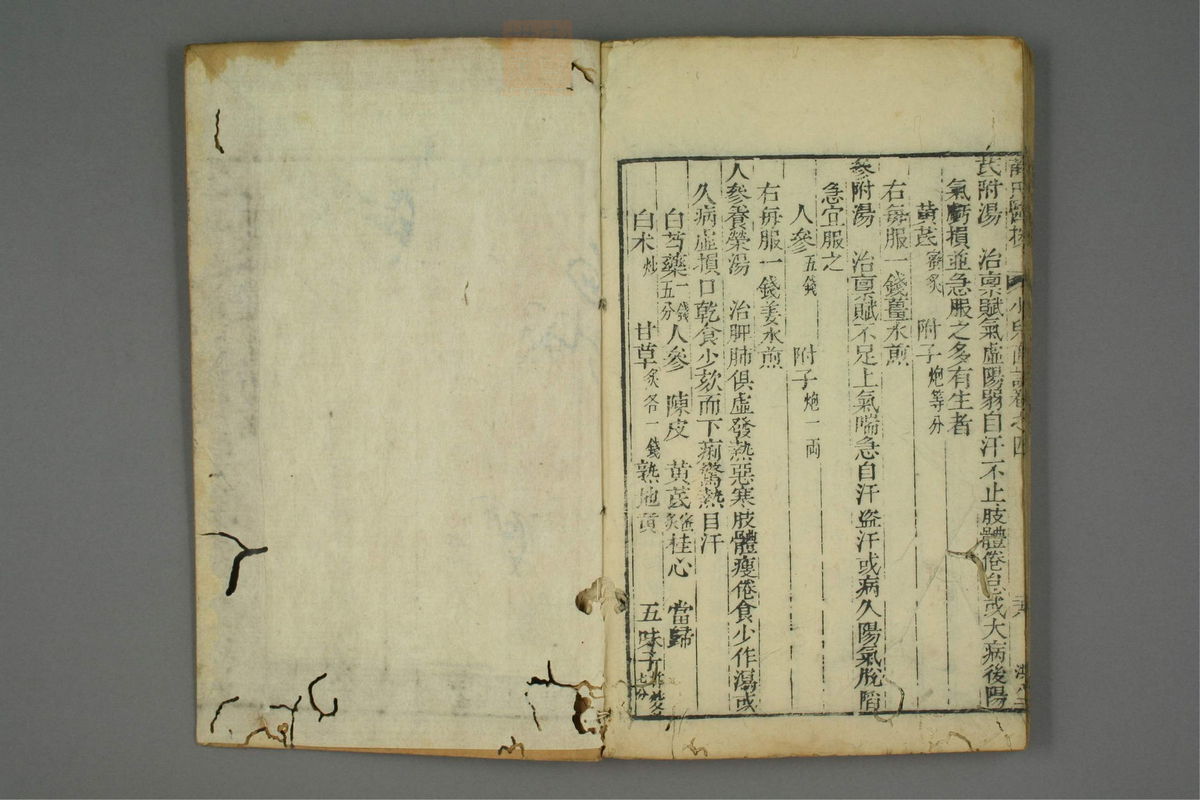 芪附湯　治禀賦氣虛陽弱自汗不止肢體倦怠或大病後陽
氣虧損並急服之多有生者
黃芪蜜炙　附子炮等分
右每服一錢薑水煎
參附湯　治禀賦不足上氣喘急自汗盜汗或病久陽氣脫陷
急宜服之
人參五錢　附子炮一両
右每服一錢姜水煎
人參養榮湯　治肝肺俱虛發熱惡寒肢體瘦倦食少作瀉或
久病虛損口乾食少欬而下痢驚熱自汗
白芍藥一錢五分　人參　陳皮　黃芪蜜炙　桂心　當歸
白术炒　甘草炙各一錢　熟地黃　五味子炒杵各七分